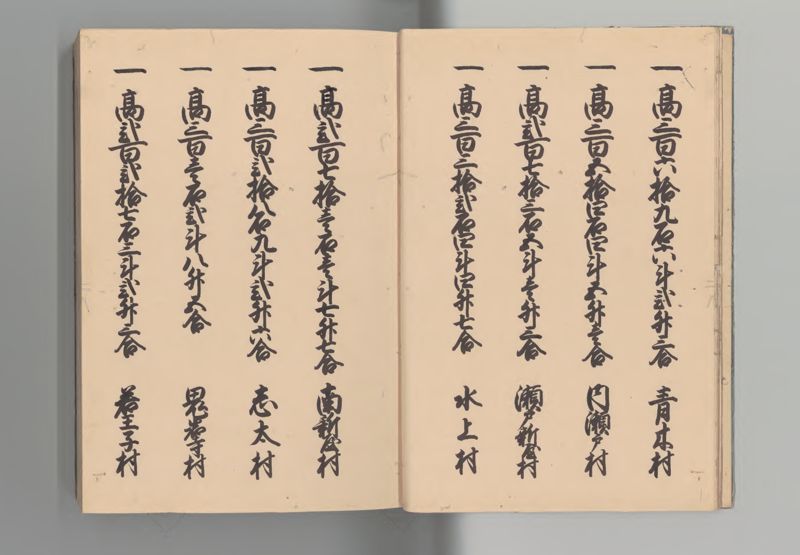 一 高三百六拾九石六斗弐升三合 青木村
一 高三百五拾四石四斗五升壱合 内瀬戸村
一 高弐百七拾三石五斗壱升三合 瀬戸新屋村
一 高三百三拾弐石四斗四升七合 水上村
一 高弐百七拾壱石壱斗七升七合 南新屋村
一 高三百弐拾八石九斗弐升六合 志太村
一 高三百壱石弐斗八升五合 鬼岩寺村
一 高弐百弐拾七石三斗弐升三合 若王子村